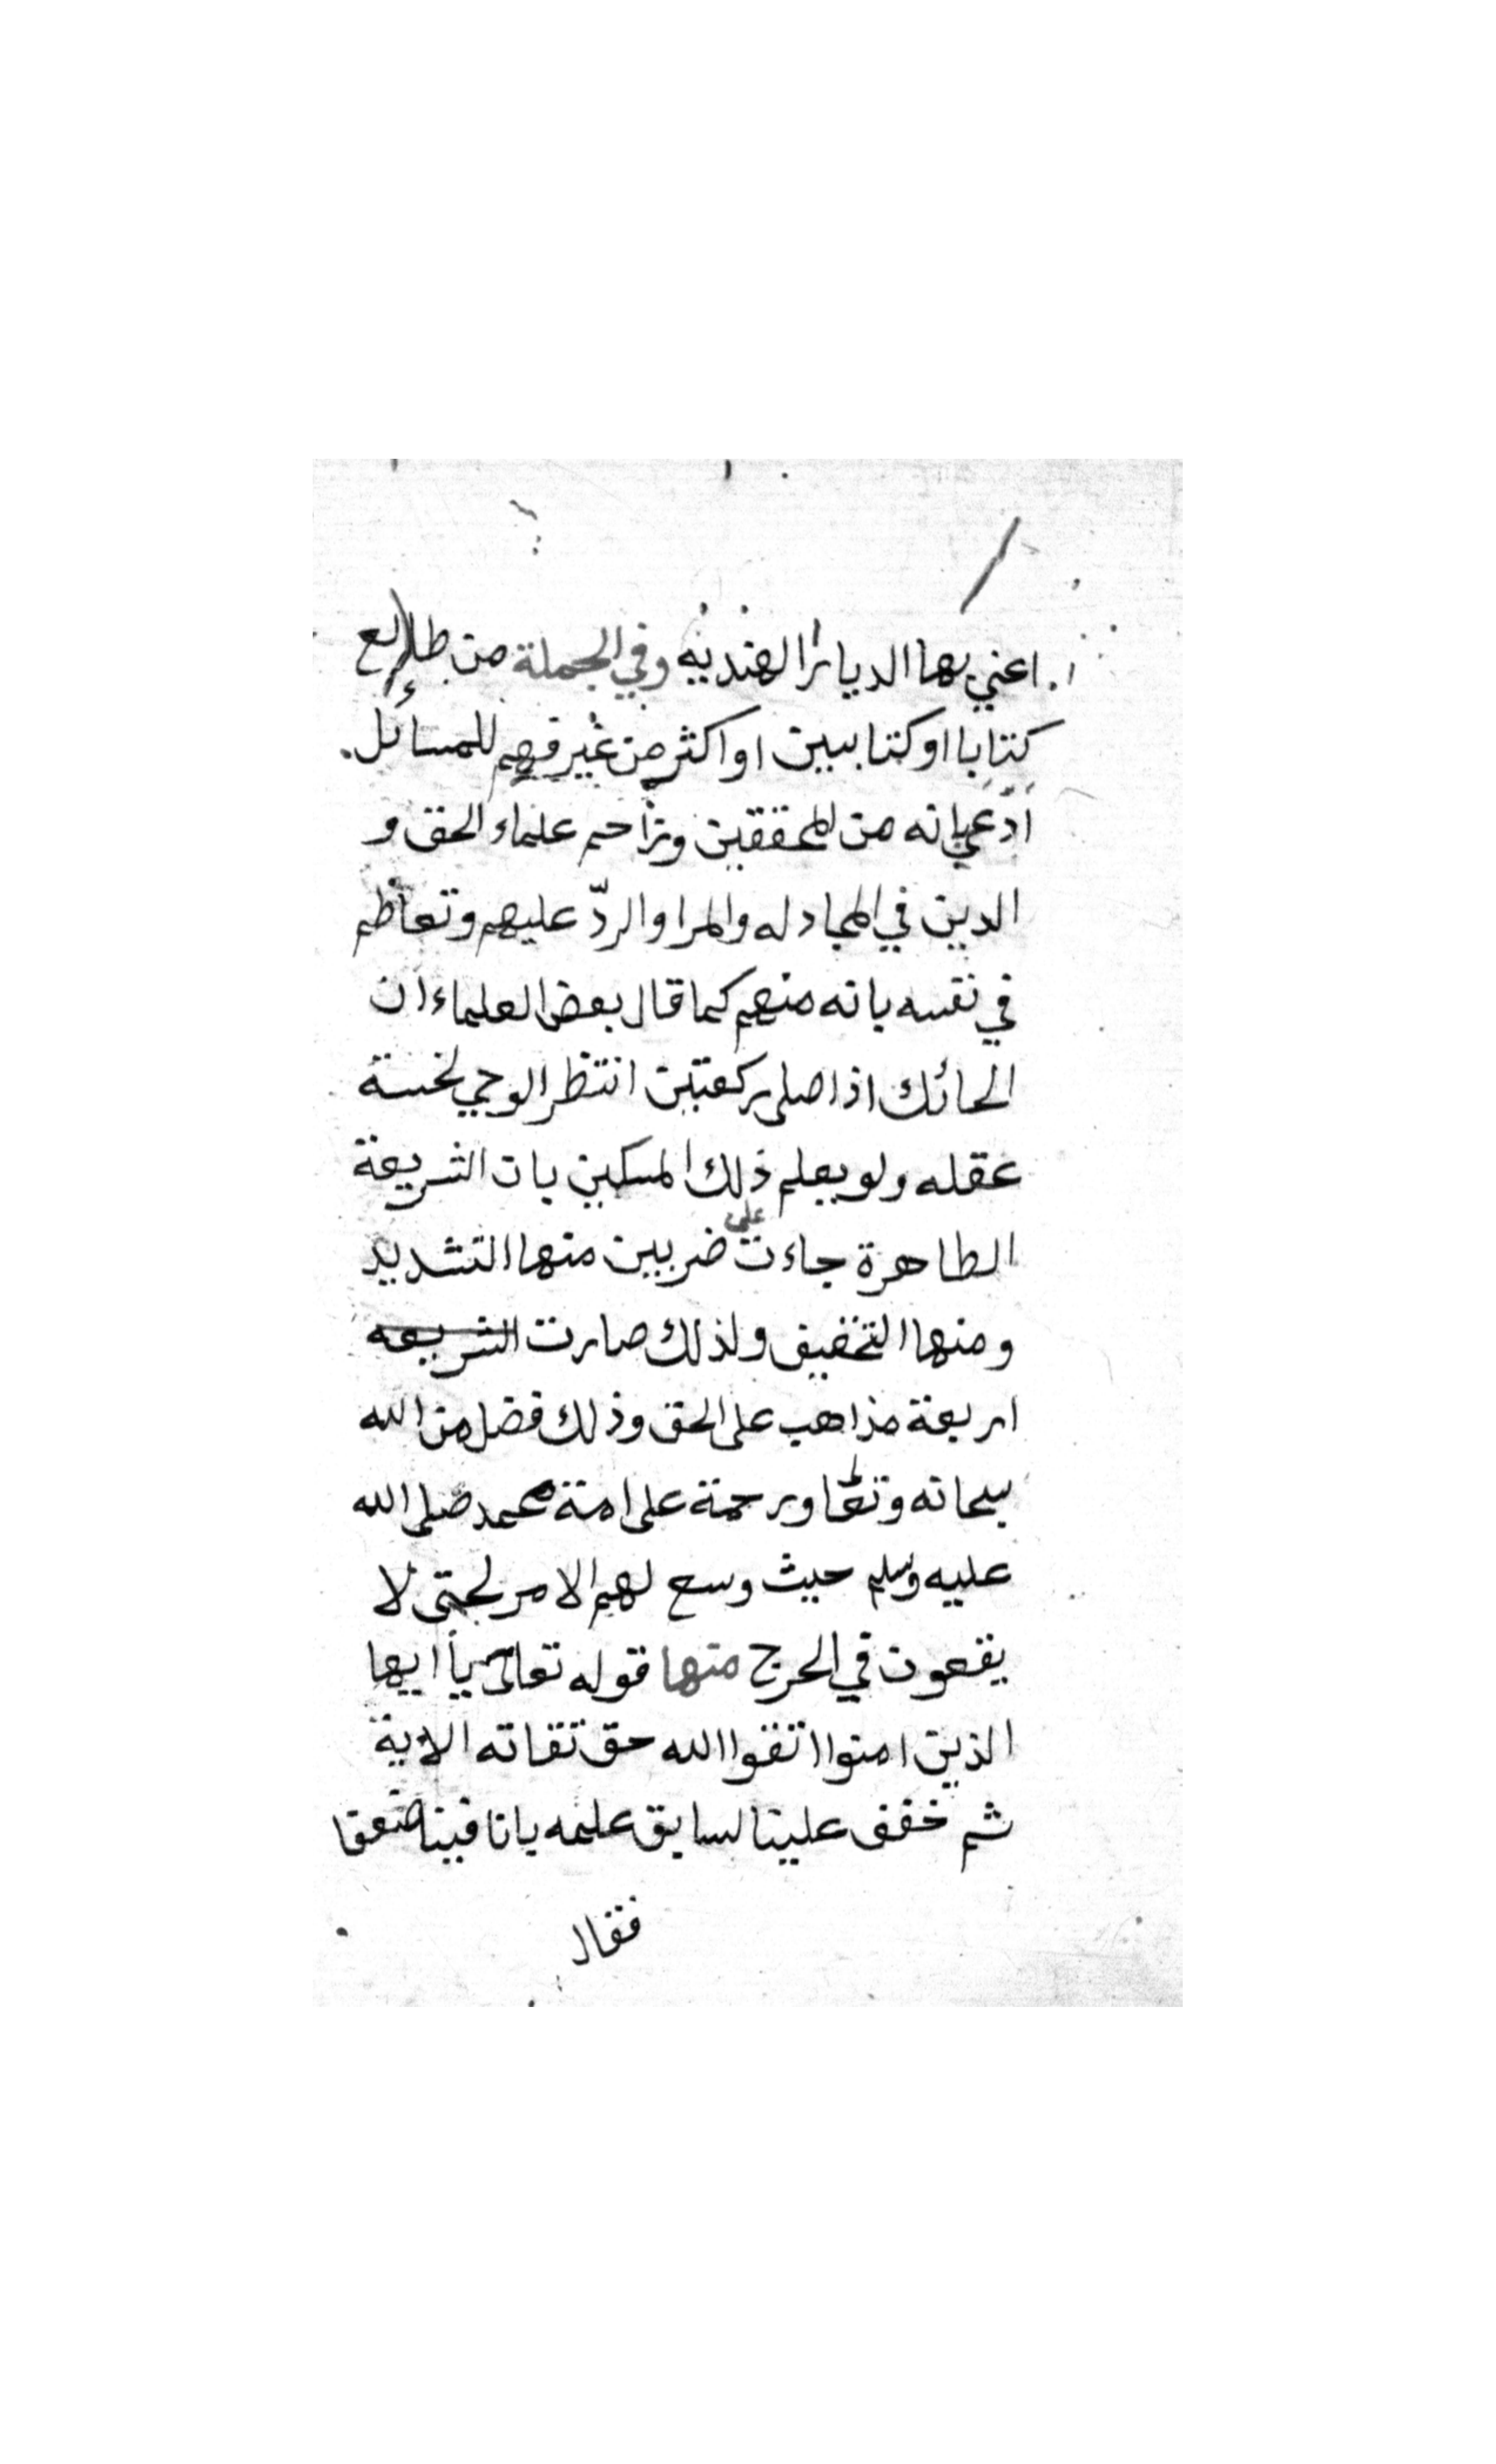 اعني بها الديار الهنديه وفي الجملة من طالع
كتابا او كتابين او اكثر من غير فهم للمسائل
ادّعي انه من المحققين وتزاحم علماء الحق و
الدين في المجادله والمرا والردّ عليهم وتعاظم
في نفسه بانه منهم كما قال بعض العلماء ان
الحائك اذا صلى ركعتين انتظر الوحي لخسة
عقله ولو يعلم ذلك المسكين بان الشريعة
الطاهرة جاءت على ضربين منها التشديد
ومنها التخفيف ولذلك صارت الشريعه
اربعة مذاهب على الحق وذلك فضل من الله
سبحانه وتعالى ورحمة على امة محمد صلى الله
عليه وسلم حيث وسع لهم الامر لحتى لا
يقعون في الحرج منها قوله تعالى يا ايها
الذين امنوا اتقوا الله حق تقاته الاية
ثم خفف علينا لسابق علمه بانا فينا ضعفا
فقال